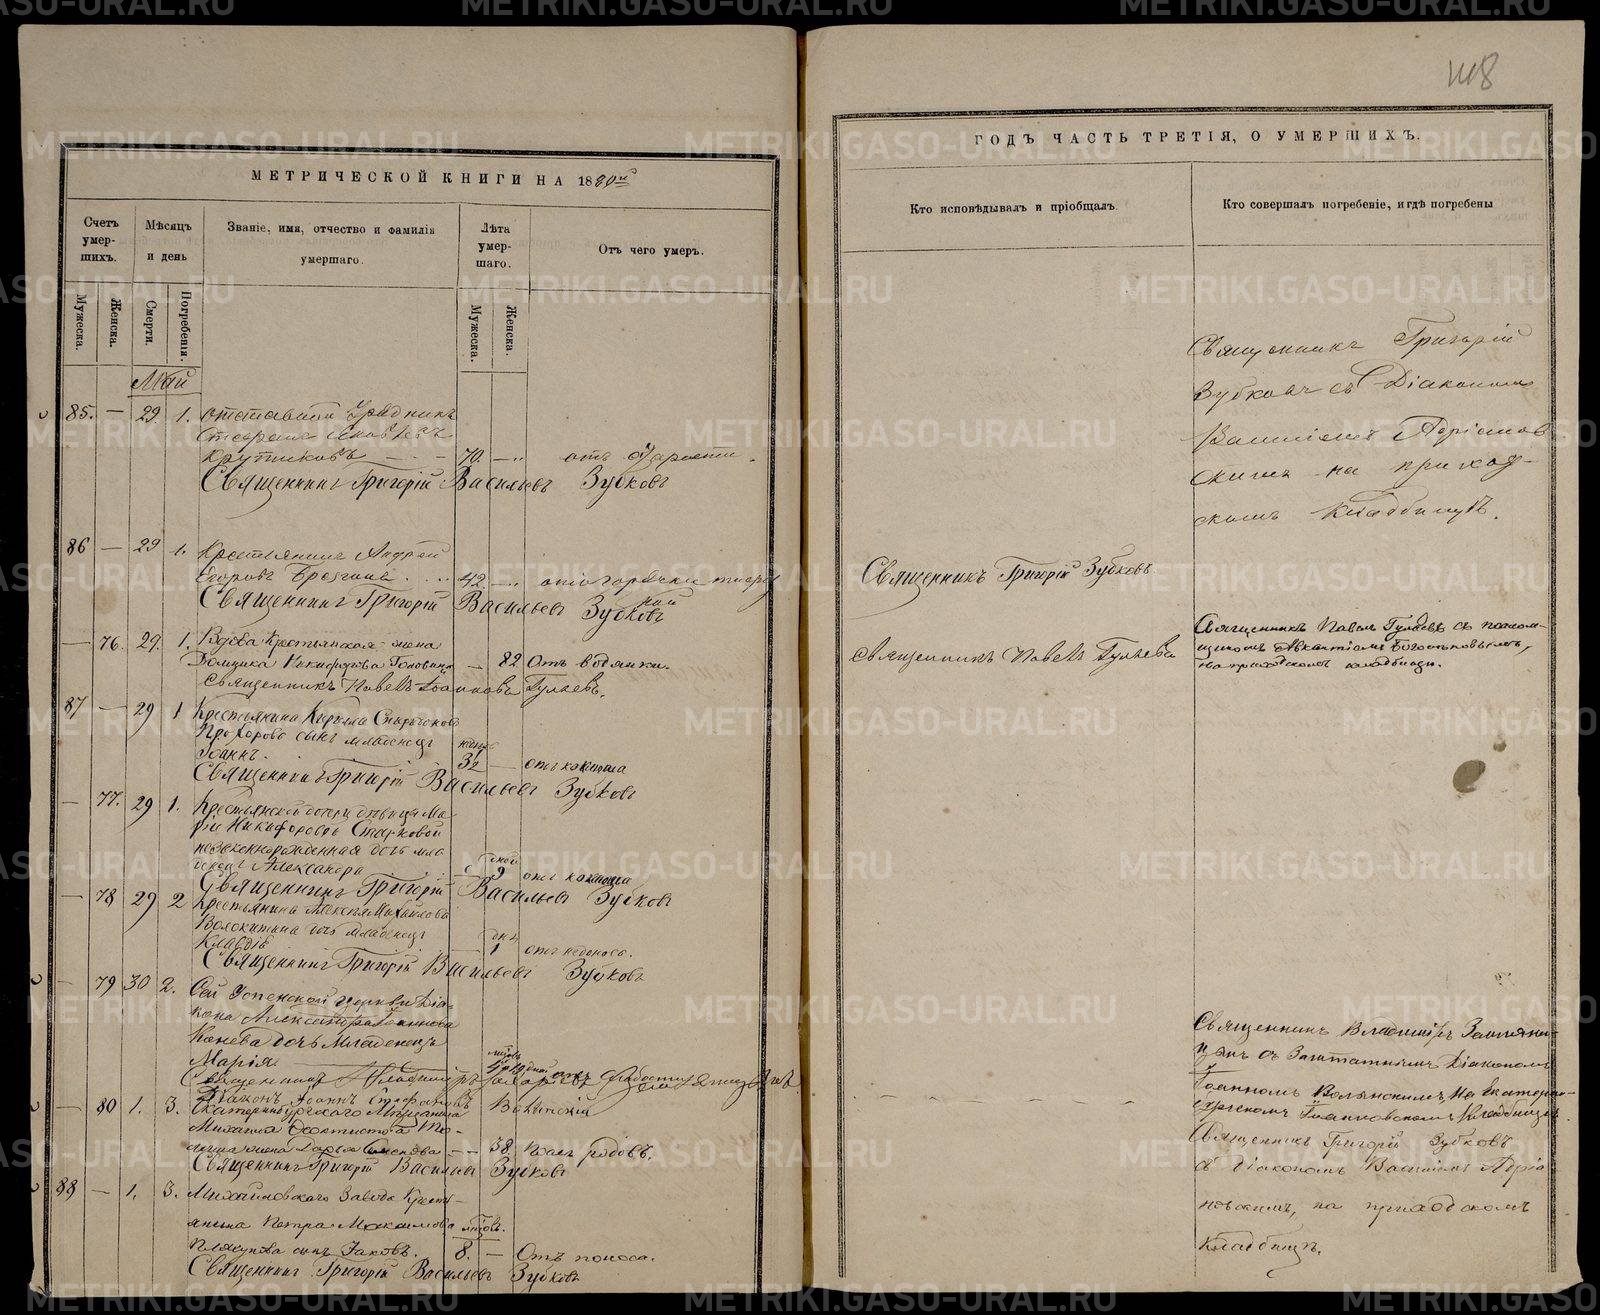 МЕТРИЧЕСКОЙ КНИГИ НА 1880й
Счетъ умер-шихъ.
Мѣсяцъ и день
Званіе, имя, отчество и фамилія умершаго.
Лѣта умер-шаго.
Отъ чего умеръ.
Мужеска.
Женска.
Смерти.
Погребенія.
Мужеска.
Женска.
Май
85. — 29. 1. отставной Урядникъ
Крутиковъ — - - 70. —„ отъ старости.
Священникъ Григорій Васильевъ Зубковъ
86 — 29 1. Крестьянинъ Андрей
Егоровъ Брагинъ . . . . 42 —„ отъ горячки
Священникъ Григорій Васильевъ Зубковъ
— 76. 29. 1. Вдова Крестьянская жена
Домника Никифорова — 82 Отъ водянки.
Священникъ Павелъ Іоанновъ Гуляевъ.
87 — 29 1 Крестьянина Кирилла
Прохорова сынъ младенецъ
Іоаннъ. 32 — отъ
Священникъ Григорій Васильевъ Зубковъ
— 77. 29 1. Крестьянской дочери дѣвицы Ма-
ріи Никифоровой Старковой
незаконнорожденная дочь мла-
денецъ Александра дней 9 отъ
Священникъ Григорій Васильевъ Зубковъ
— 78 29 2 Крестьянина Алексѣя Михайлова
Волокитина дочь младенецъ
Клавдія 1 отъ недоноса.
Священникъ Григорій Васильевъ Зубковъ
— 79 30 2. Сей Успенской церкви діа-
кона Александра Іоаннова
Канева дочь младенецъ
Марія
Священникъ Владиміръ
Діаконъ Іоаннъ Стефановъ Волынскій
— 80 1. 3. Екатеринбургскаго Мѣщанина
Михаила
жена Дарья — 38. Послѣ родовъ.
Священникъ Григорій Васильевъ Зубковъ
88 — 1. 3. Михайловскаго Завода Кресть-
янина Петра Максимова мѣсяц.
сынъ Іаковъ. 8. — Отъ поноса.
Священникъ Григорій Васильевъ Зубковъ
118
ГОДЪ ЧАСТЬ ТРЕТІЯ, О УМЕРШИХЪ.
Кто исповѣдывалъ и пріобщалъ.
Кто совершалъ погребеніе, и гдѣ погребены
Священникъ Григорій
Зубковъ съ Діакономъ
Василіемъ Адріанов
скимъ на приход-
скомъ кладбищѣ.
Священникъ Григорій Зубковъ.
Священникъ Павелъ Гуляевъ
Священникъ Павелъ Гуляевъ съ псалом-
щикомъ Богословымъ,
на приходскомъ кладбищѣ.
Священникъ Владиміръ
съ Заштатнымъ Діакономъ
Іоанномъ Волынскимъ, на Екатерин-
бургскомъ Іоанновскомъ кладбищѣ.
Священникъ Григорій Зубковъ
съ Діакономъ Василіемъ Адріа
новскимъ, на приходскомъ
кладбищѣ.
METRIKI.GASO-URAL.RU